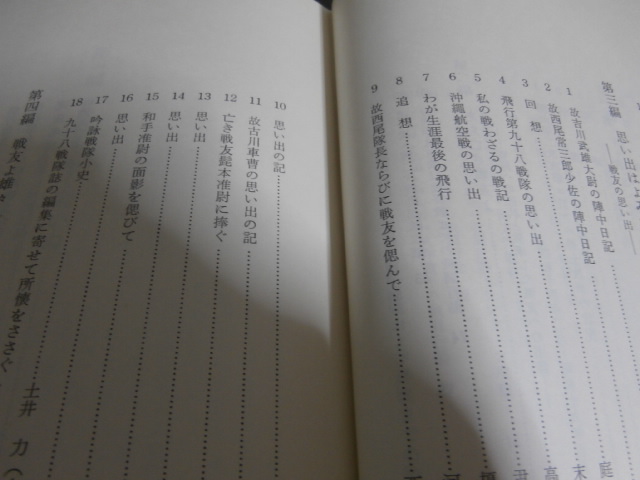 第三編 思い出は
―戦友の思い出―
1 故古川武雄大尉の陣中日記
2 故西尾常三郎少佐の陣中日記
3 回想
4 飛行第九十八戦隊の思い出
5 私の戦わざるの戦記
6 沖縄航空戦の思い出
7 わが生涯最後の飛行
8 追想
9 故西尾隊長ならびに戦友を偲んで
10 思い出の記
11 故古川車曹の思い出の記
12 亡き戦友髭本准尉に捧ぐ
13 思い出
14 思い出
15 和手准尉の面影を偲びて
16 思い出
17 吟詠戦隊小史
18 九十八戦隊誌の編集に寄せて所懐をささぐ 土井 力
第四編 戦友よ雄